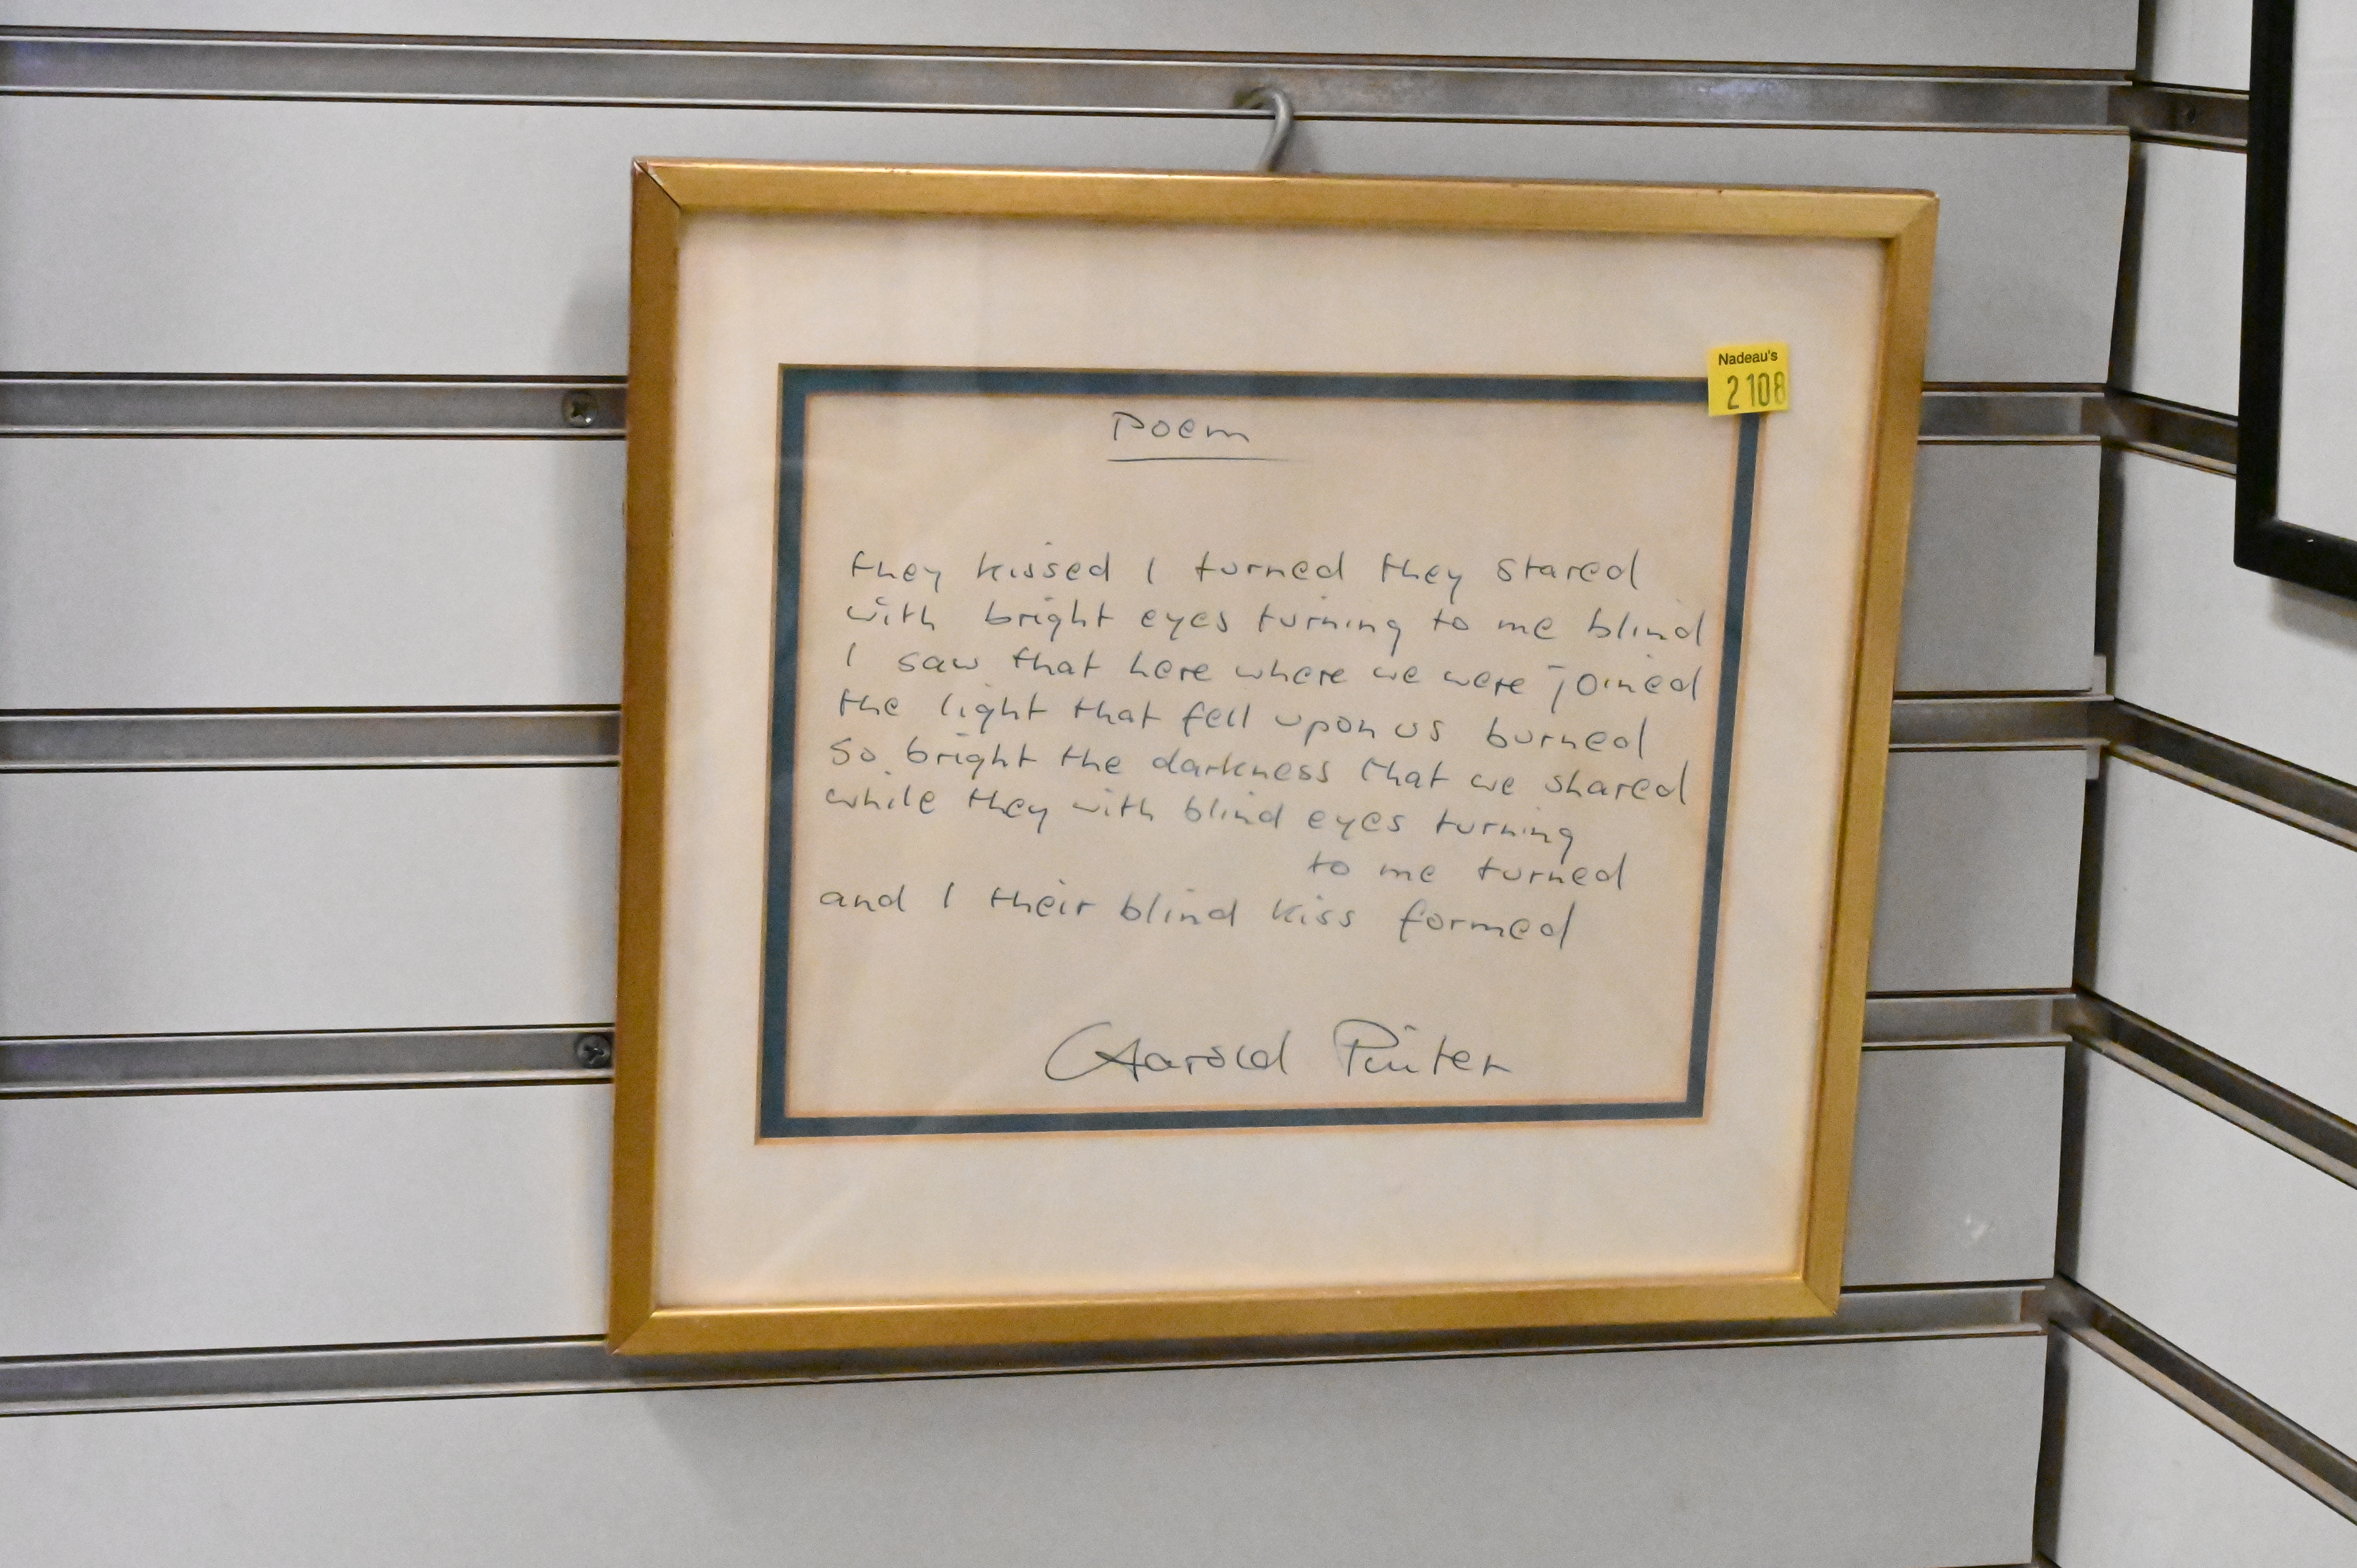 Nadeau's
2108
Poem
they kissed I turned they stared
with bright eyes turning to me blind
I saw that here where we were joined
the light that fell upon us burned
so bright the darkness that we shared
while they with blind eyes turning
to me turned
and I their blind kiss formed
Harold Pinter